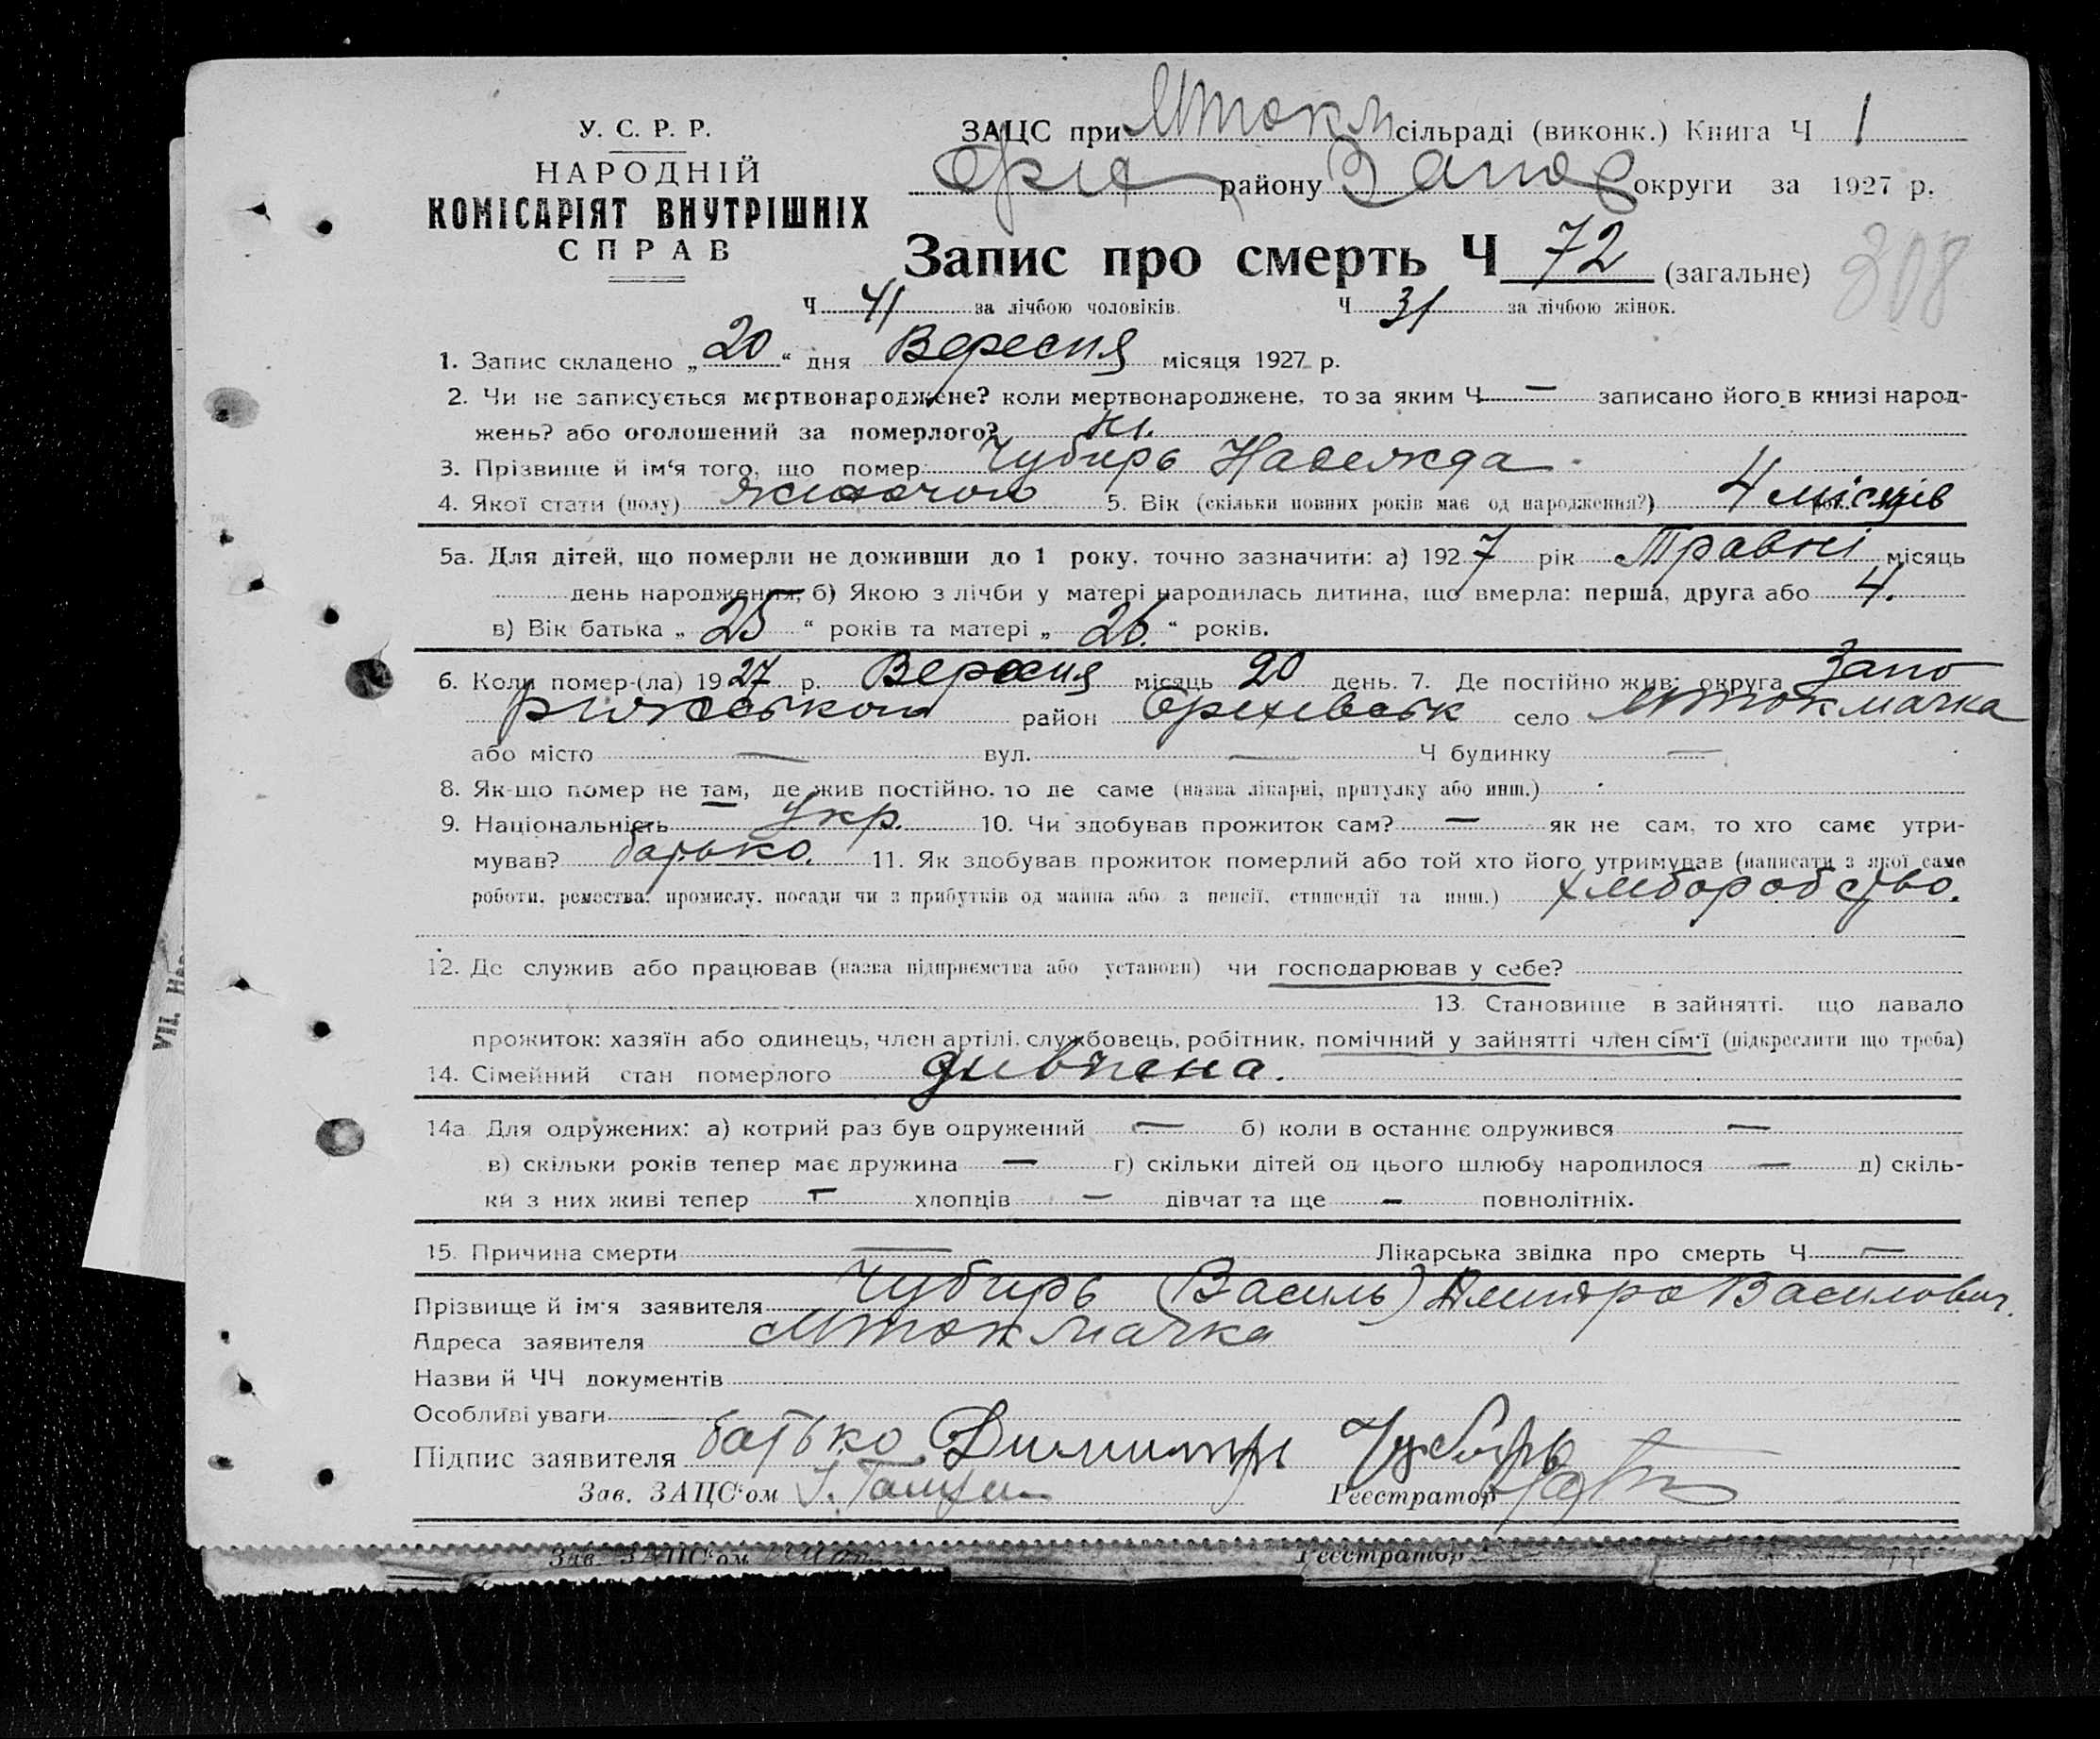 У. С. Р. Р.
НАРОДНІЙ
КОМІСАРІЯТ ВНУТРІШНІХ
СПРАВ
ЗАЦС при Мтокм сільраді (виконк.) Книга Ч 1
району Запор округи за 1927 р.
Запис про смерть Ч 72 (загальне)
308
Ч 41 за лічбою чоловіків. Ч 31 за лічбою жінок.
1. Запис складено „20“ дня Вересня місяця 1927 р.
2. Чи не записується мертвонароджене? коли мертвонароджене, то за яким Ч — записано його в книзі народ-
жень? або оголошений за померлого? ні.
3. Прізвище й ім'я того, що помер Чубирь Надежда.
4. Якої стати (полу) жіночои 5. Вік (скільки повних років має од народження?) 4 місяців
5а. Для дітей, що померли не доживши до 1 року, точно зазначити: а) 1927 рік Травні місяць
день народження, б) Якою з лічби у матері народилась дитина, що вмерла: перша, друга або 4.
в) Вік батька „25“ років та матері „26.“ років.
6. Коли помер-(ла) 1927 р. Вересня місяць 20 день. 7. Де постійно жив: округа Запо
рижськои район Оріхівськ село Мтокмачка
або місто — вул. — Ч будинку —
8. Як-що помер не там, де жив постійно, то де саме (назва лікарні, притулку або инш.)
9. Національність Укр. 10. Чи здобував прожиток сам? — як не сам, то хто саме утри-
мував? батько. 11. Як здобував прожиток померлий або той хто його утримував (написати з якої саме
роботи, ремества, промислу, посади чи з прибутків од майна або з пенсії, стипендії та инш.) хліборобство.
12. Де служив або працював (назва підприємства або установи) чи господарював у себе?
13. Становище в зайнятті, що давало
прожиток: хазяїн або одинець, член артілі, службовець, робітник, помічний у зайнятті член сім'ї (підкреслити що треба)
14. Сімейний стан померлого дивчена.
14а Для одружених: а) котрий раз був одружений — б) коли в останнє одружився —
в) скільки років тепер має дружина — г) скільки дітей од цього шлюбу народилося — д) скіль-
ки з них живі тепер — хлопців — дівчат та ще — повнолітніх.
15. Причина смерти — Лікарська звідка про смерть Ч —
Прізвище й ім'я заявителя Чубирь (Василь) Дмитро Василович.
Адреса заявителя Мтокмачка
Назви й ЧЧ документів
Особливі уваги
Підпис заявителя батько Димитри Чубирь
Зав. ЗАЦС'ом
Реєстратор
Зав. ЗАЦС'ом Реєстратор